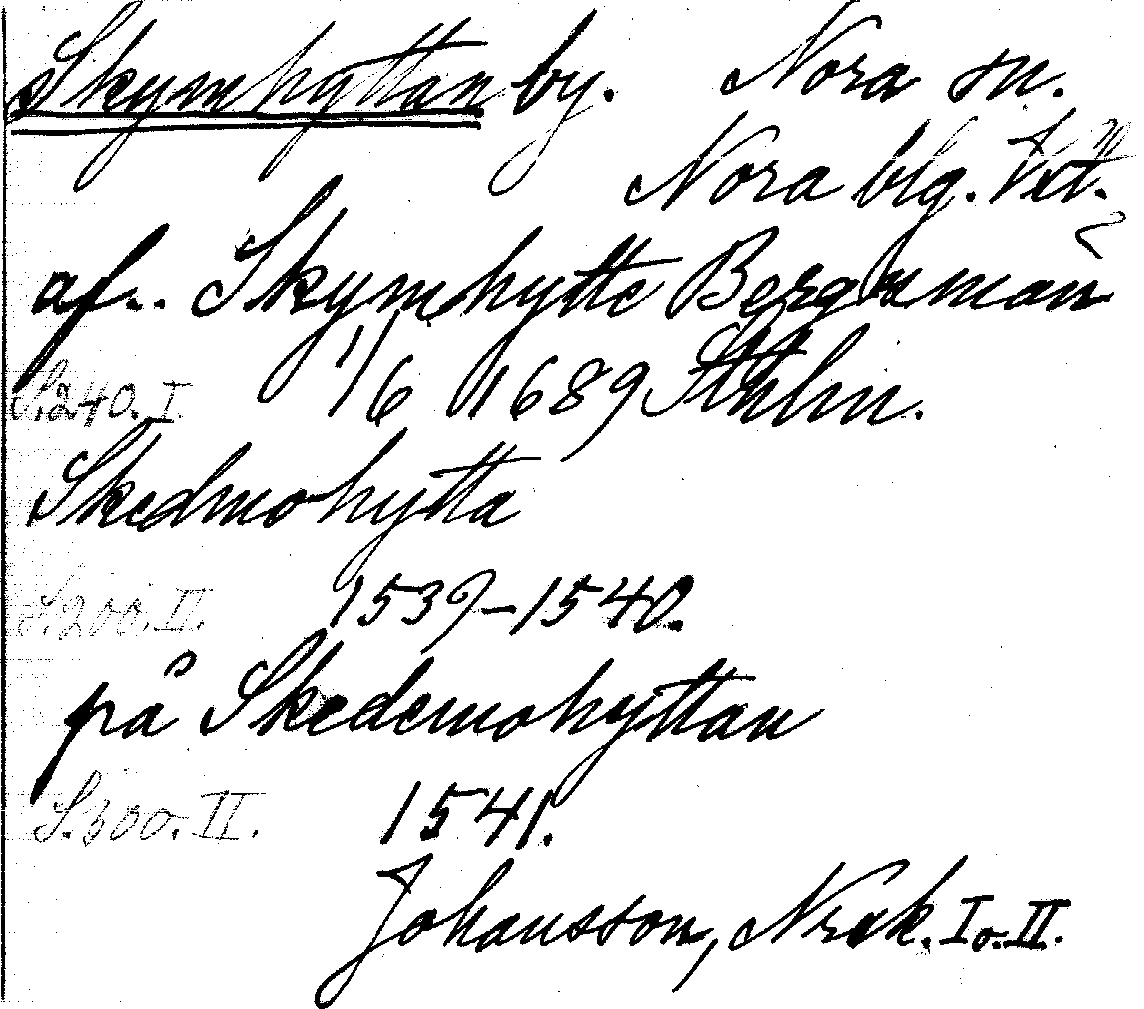 Skymhyttan by. Nora sn.
Nora blg. Vstl.
af.. Skymhytte Bergzman
1/6 1689 Sthlm.
S.240. I.
Skedmohytta
S.200. II. 1539-1540.
på Skedemohyttan
S.300. II. 1541.
Johansson, Nrak. I o. II.